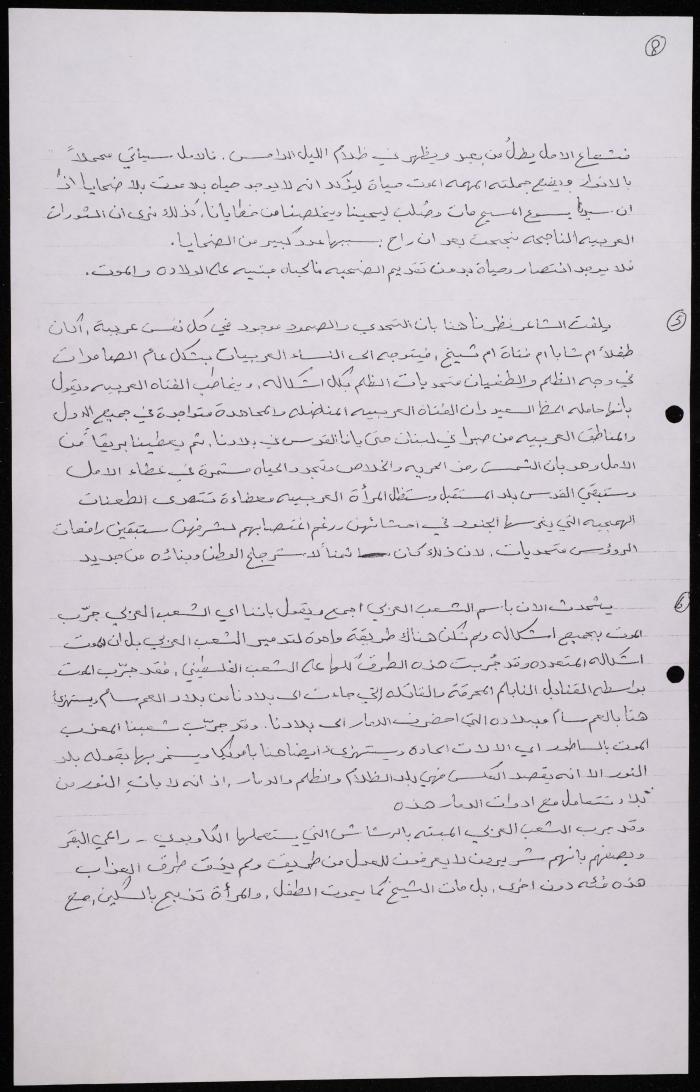 8
فشعاع الامل يطلُ من بعيد ويظهر في ظلام الليل الدامس. فالامل سيأتي محملاً
بالانوار ويضع جملته المهمه الموت حياة ليؤكد انه لا يوجد حياه بلا موت بلا ضحايا اذ
ان سيدنا يسوع المسيح مات وصُلب ليحيينا ويخلصنا من خطايانا, كذلك نرى ان الثورات
العربيه الناجحه نجحت بعد ان راح بسببها عدد كبير من الضحايا.
فلا يوجد انتصار وحياة بدون تقديم الضحيه فالحياه مبنيه على الولاده والموت.
5
يلفت الشاعر نظرنا هنا بان التحدي والصمود موجود في كل نفس عربية, أكان
طفلاً ام شابا ام فتاة ام شيخ, فيتوجه الى النساء العربيات بشكل عام الصامدات
في وجه الظلم والطغيان متحديات الظلم بكل اشكاله, ويخاطب الفتاه العربيه ويقول
بانها حامله الحظ السعيد وان الفتاة العربيه المناضله والمجاهدة متواجدة في جميع الدول
والمناطق العربيه من صبرا في لبنان حتى يافا القدس في بلادنا, ثم يعطينا بريقاً من
الامل وهو بان الشمس رمز الحريه والخلاص وتجدد الحياه مستمرة في عطاء الامل
وستبقى القدس بلد المستقبل وستظل المرأة العربيه معطاءة تتحدى الطعنات
الهمجيه التي يغرسها الجنود في احشائهن ورغم اغتصابهم لشرفهن ستبقين رافعات
الرؤوس متحديات, لان ذلك كان ثمناً لاسترجاع الوطن وبناؤه من جديد
6
يتحدث الان باسم الشعب العربي اجمع ويقول باننا اي الشعب العربي جرّب
الموت بجميع اشكاله ولم تكن هناك طريقة واحدة لتدمير الشعب العربي بل ان للموت
اشكاله المتعدده وقد جُربت هذه الطرق كلها على الشعب الفلسطيني, فقد جرّب الموت
بواسطه القنابل النابالم المحرقة والقاتله التي جاءت الى بلادنا من بلاد العم سام ويستهزئ
هنا بالعم سام وببلاده التي احضرت الدمار الى بلادنا. وقد جرّب شعبنا المعذب
الموت بالساطور اي الالات الحاده ويستهزئ ايضا هنا بامريكا ويسخر بها بقوله بلد
النور الا انه يقصد العكس فهي بلد الظلام والظلم والدمار, اذ انه لا يأت النور من
بلاد تتعامل مع ادوات الدمار هذه
وقد جرب الشعب العربي الميته بالرشاش التي يستعملها الكاوبوي - راعي البقر
ويصفهم بانهم شريرون لا يعرفون للعدل من طريق ولم يذق طرق العذاب
هذه فئه دون اخرى, بل مات الشيخ كما يموت الطفل, والمرأة تذبح بالسكين, مع